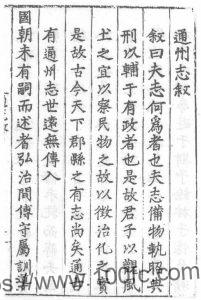 通州志敘
敘曰夫志何為者也夫志備物軌典
刑以輔于有政者也是故君子以觀風
土之宜以察民物之故以徵治化之實
是故古今天下郡縣之有志尚矣通古
有通州志世遠無傳入
國朝未有嗣而述者弘治間傅守屬訓導